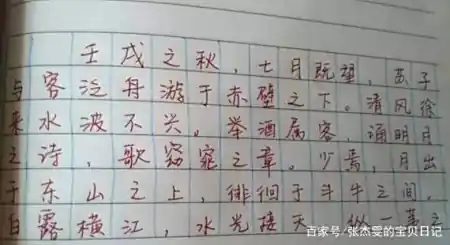 壬戌之秋，七月既望，苏子
与客泛舟游于赤壁之下。清风徐
来水波不兴。举酒属客，诵明月
之诗，歌窈窕之章。少焉，月出
于东山之上，徘徊于斗牛之间，
白露横江，水光接天。纵一苇之
百家号/张杰雯的宝贝日记